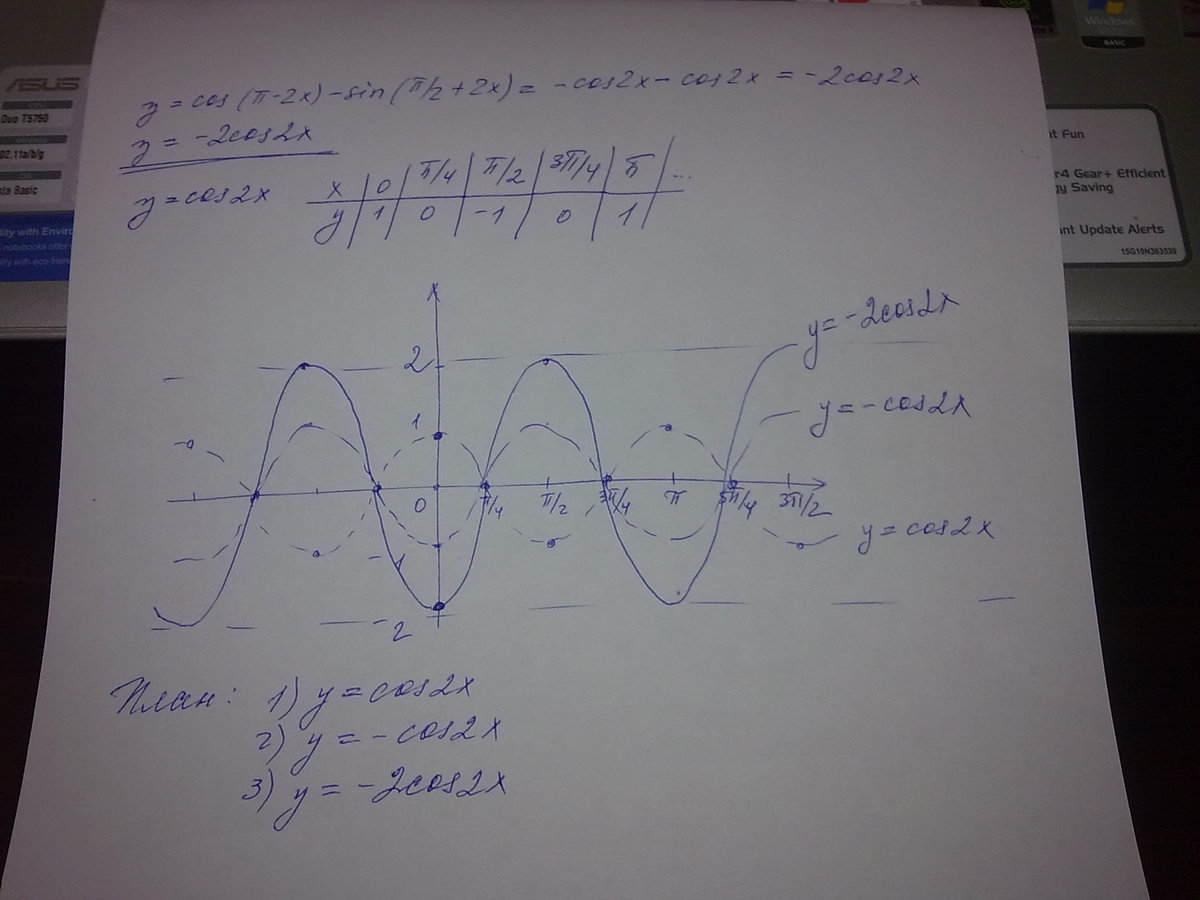 Windows
BASIC
ASUS
Duo T5750
02.11a/b/g
sta Basic
lity with Enviro
notebooks offer
lity with eco-frien
nt Fun
r4 Gear+ Efficient
gy Saving
nt Update Alerts
15G10N363530
y = cos (π-2x) - sin (π/2 + 2x) = -cos2x - cos2x = -2cos2x
y = -2cos2x
y = cos2x
x 0 π/4 π/2 3π/4 π ...
y 1 0 -1 0 1
y = -2cos2x
2
y = -cos2x
1
0 π/4 π/2 3π/4 π 5π/4 3π/2
y = cos2x
-1
-2
План: 1) y = cos2x
2) y = -cos2x
3) y = -2cos2x